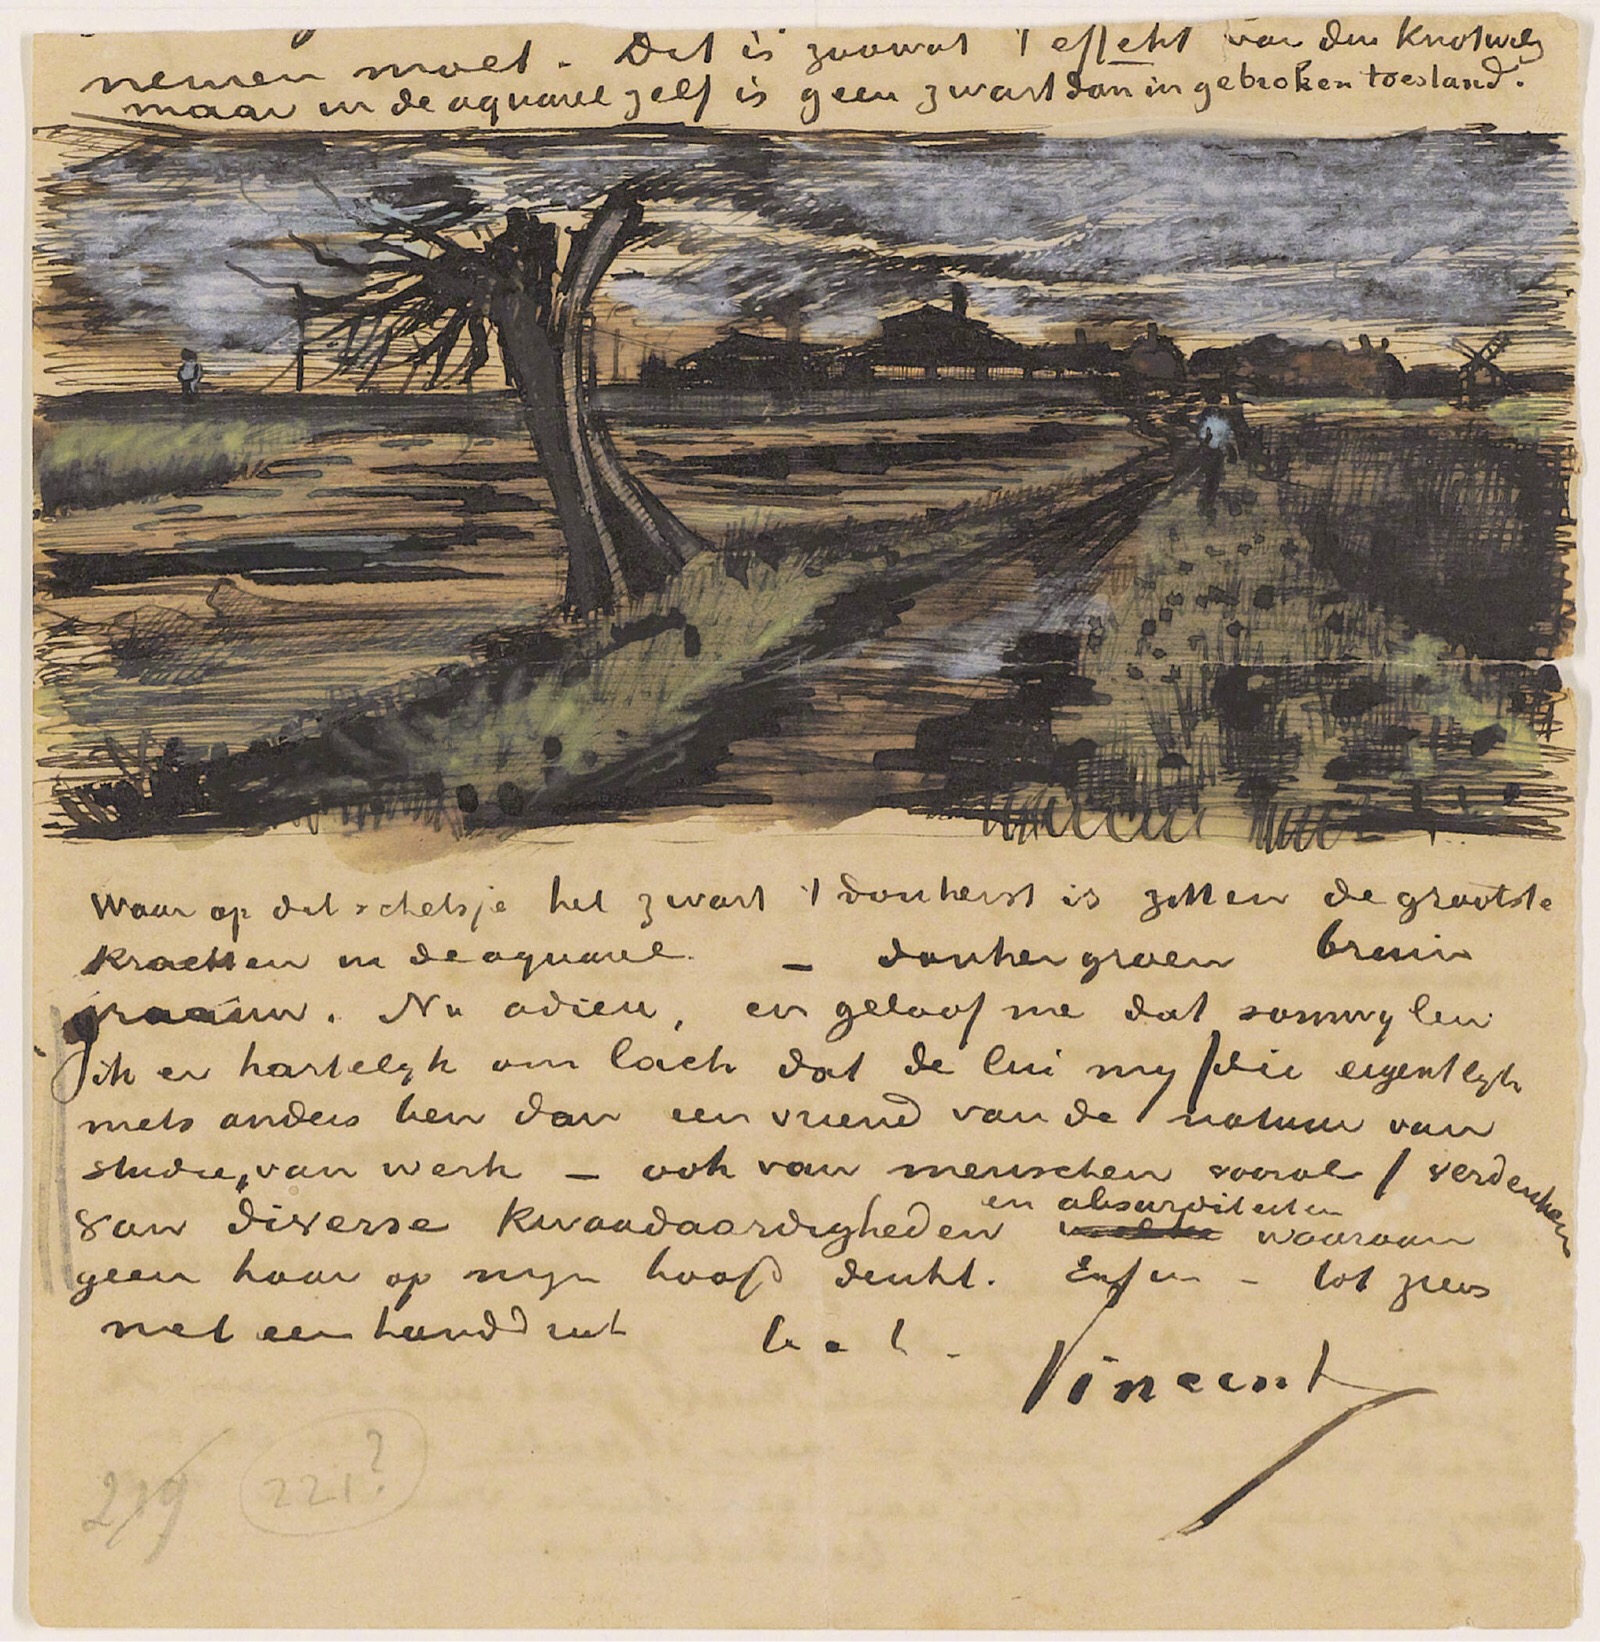 nemen moet. Dit is zoowat 't effekt van den Knotwilg
maar in de aquarel zelf is geen zwart dan in gebroken toestand.
Waar op dit schetsje het zwart 't donkerst is zitten de grootste
krachten in de aquarel – donkergroen bruin
graauw. Nu adieu, en geloof me dat somwylen
ik er hartelyk om lach dat de lui my / die eigentlyk
niets anders ben dan een vriend van de natuur van
studie, van werk – ook van menschen vooral / verdenken
van diverse kwaadaardigheden en absurditeiten waaraan
geen haar op myn hoofd denkt. Enfin – tot ziens
met een handdruk t. à t.
Vincent
219 221?